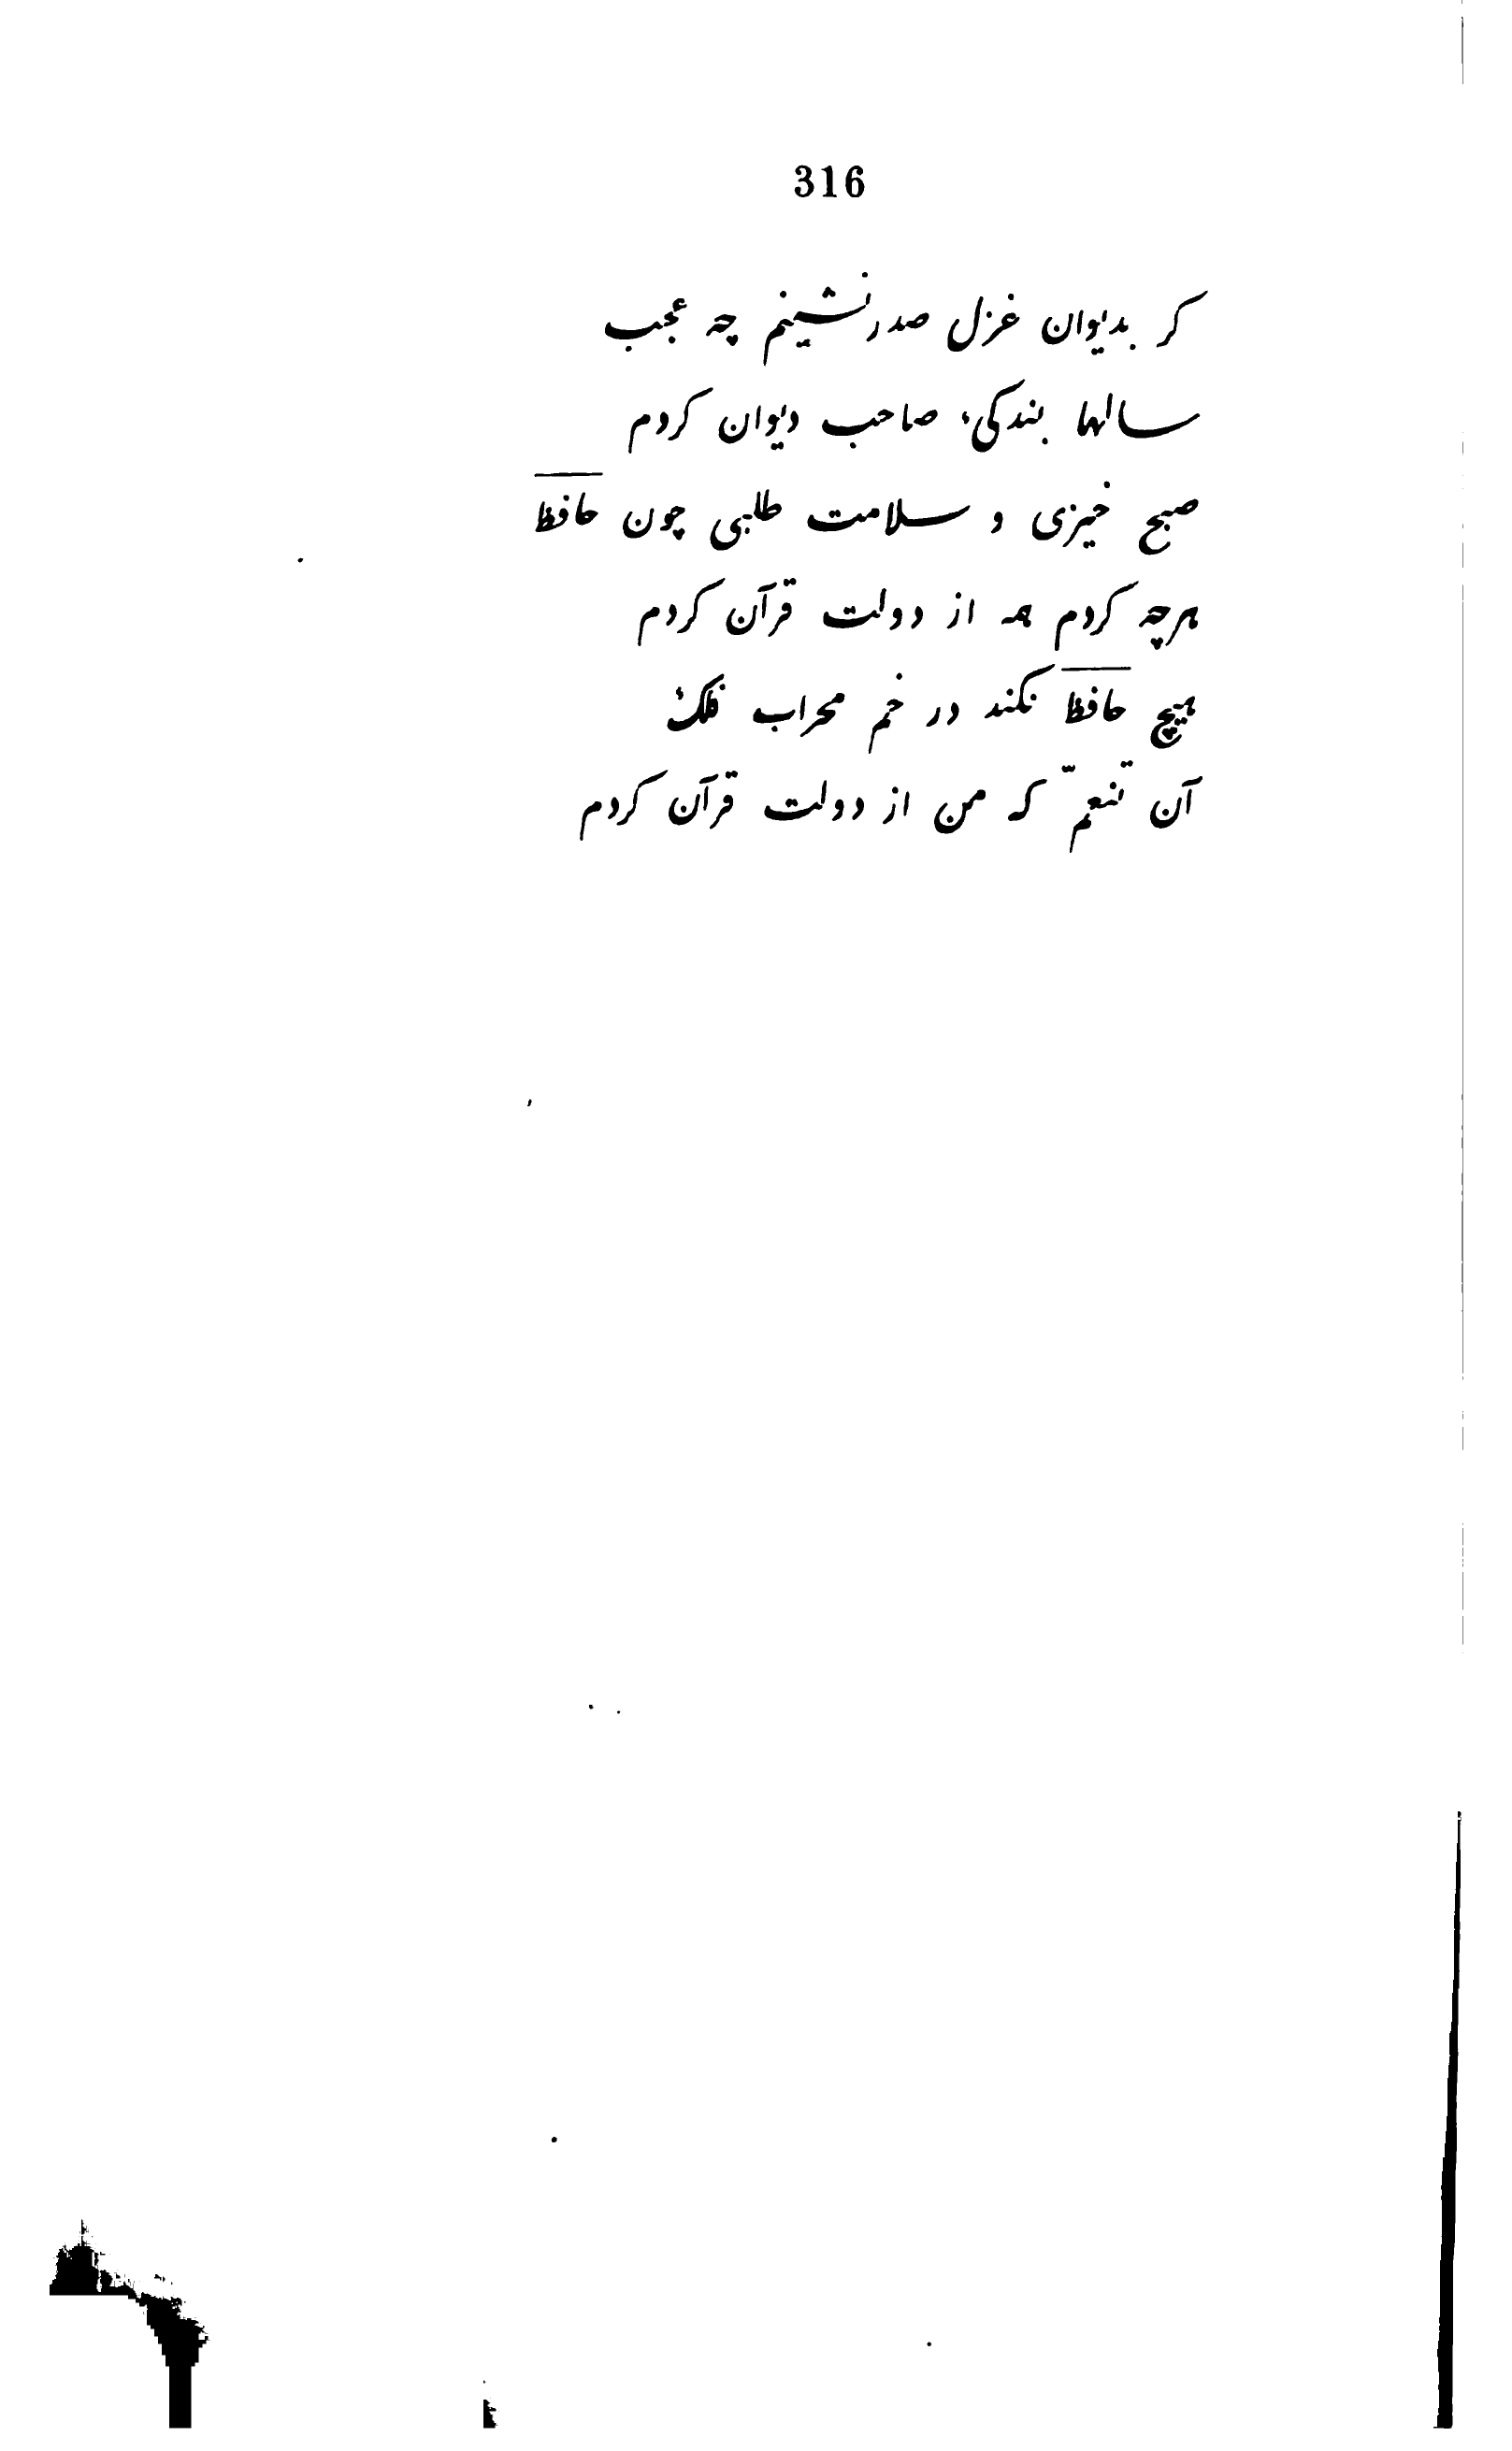 316
کر بدیوان غزل صدرنشینم چه عجب
سالها بندکیٔ صاحب دیوان کردم
صبح خیزی و سلامت طلبی چون حافظ
هرچه کردم همه از دولت قرآن کردم
هیچ حافظ نکند در خم محراب فلک
آن تنعّم که من از دولت قرآن کردم